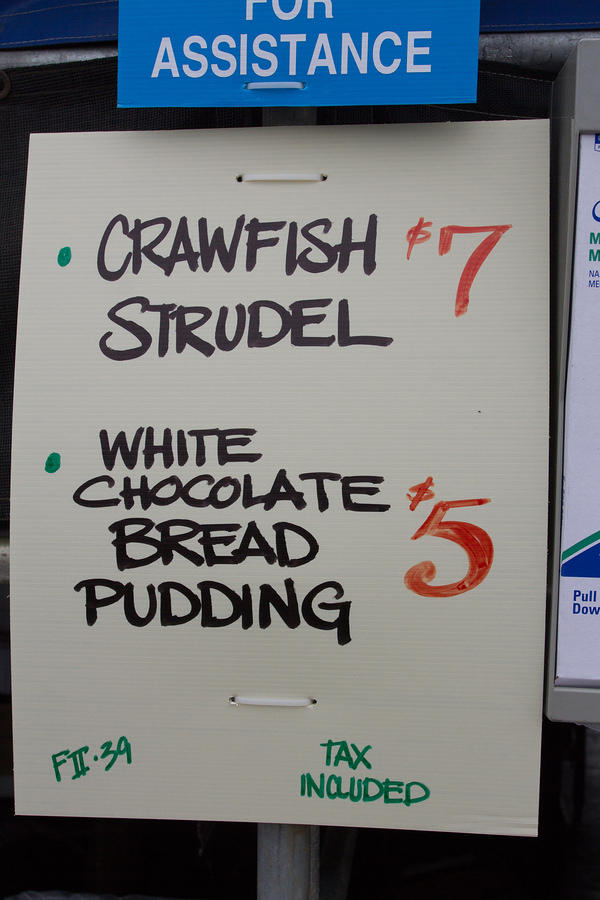 FOR
ASSISTANCE
• CRAWFISH $7
STRUDEL
• WHITE
CHOCOLATE $5
BREAD
PUDDING
FII·39
TAX
INCLUDED
Pull
Dow